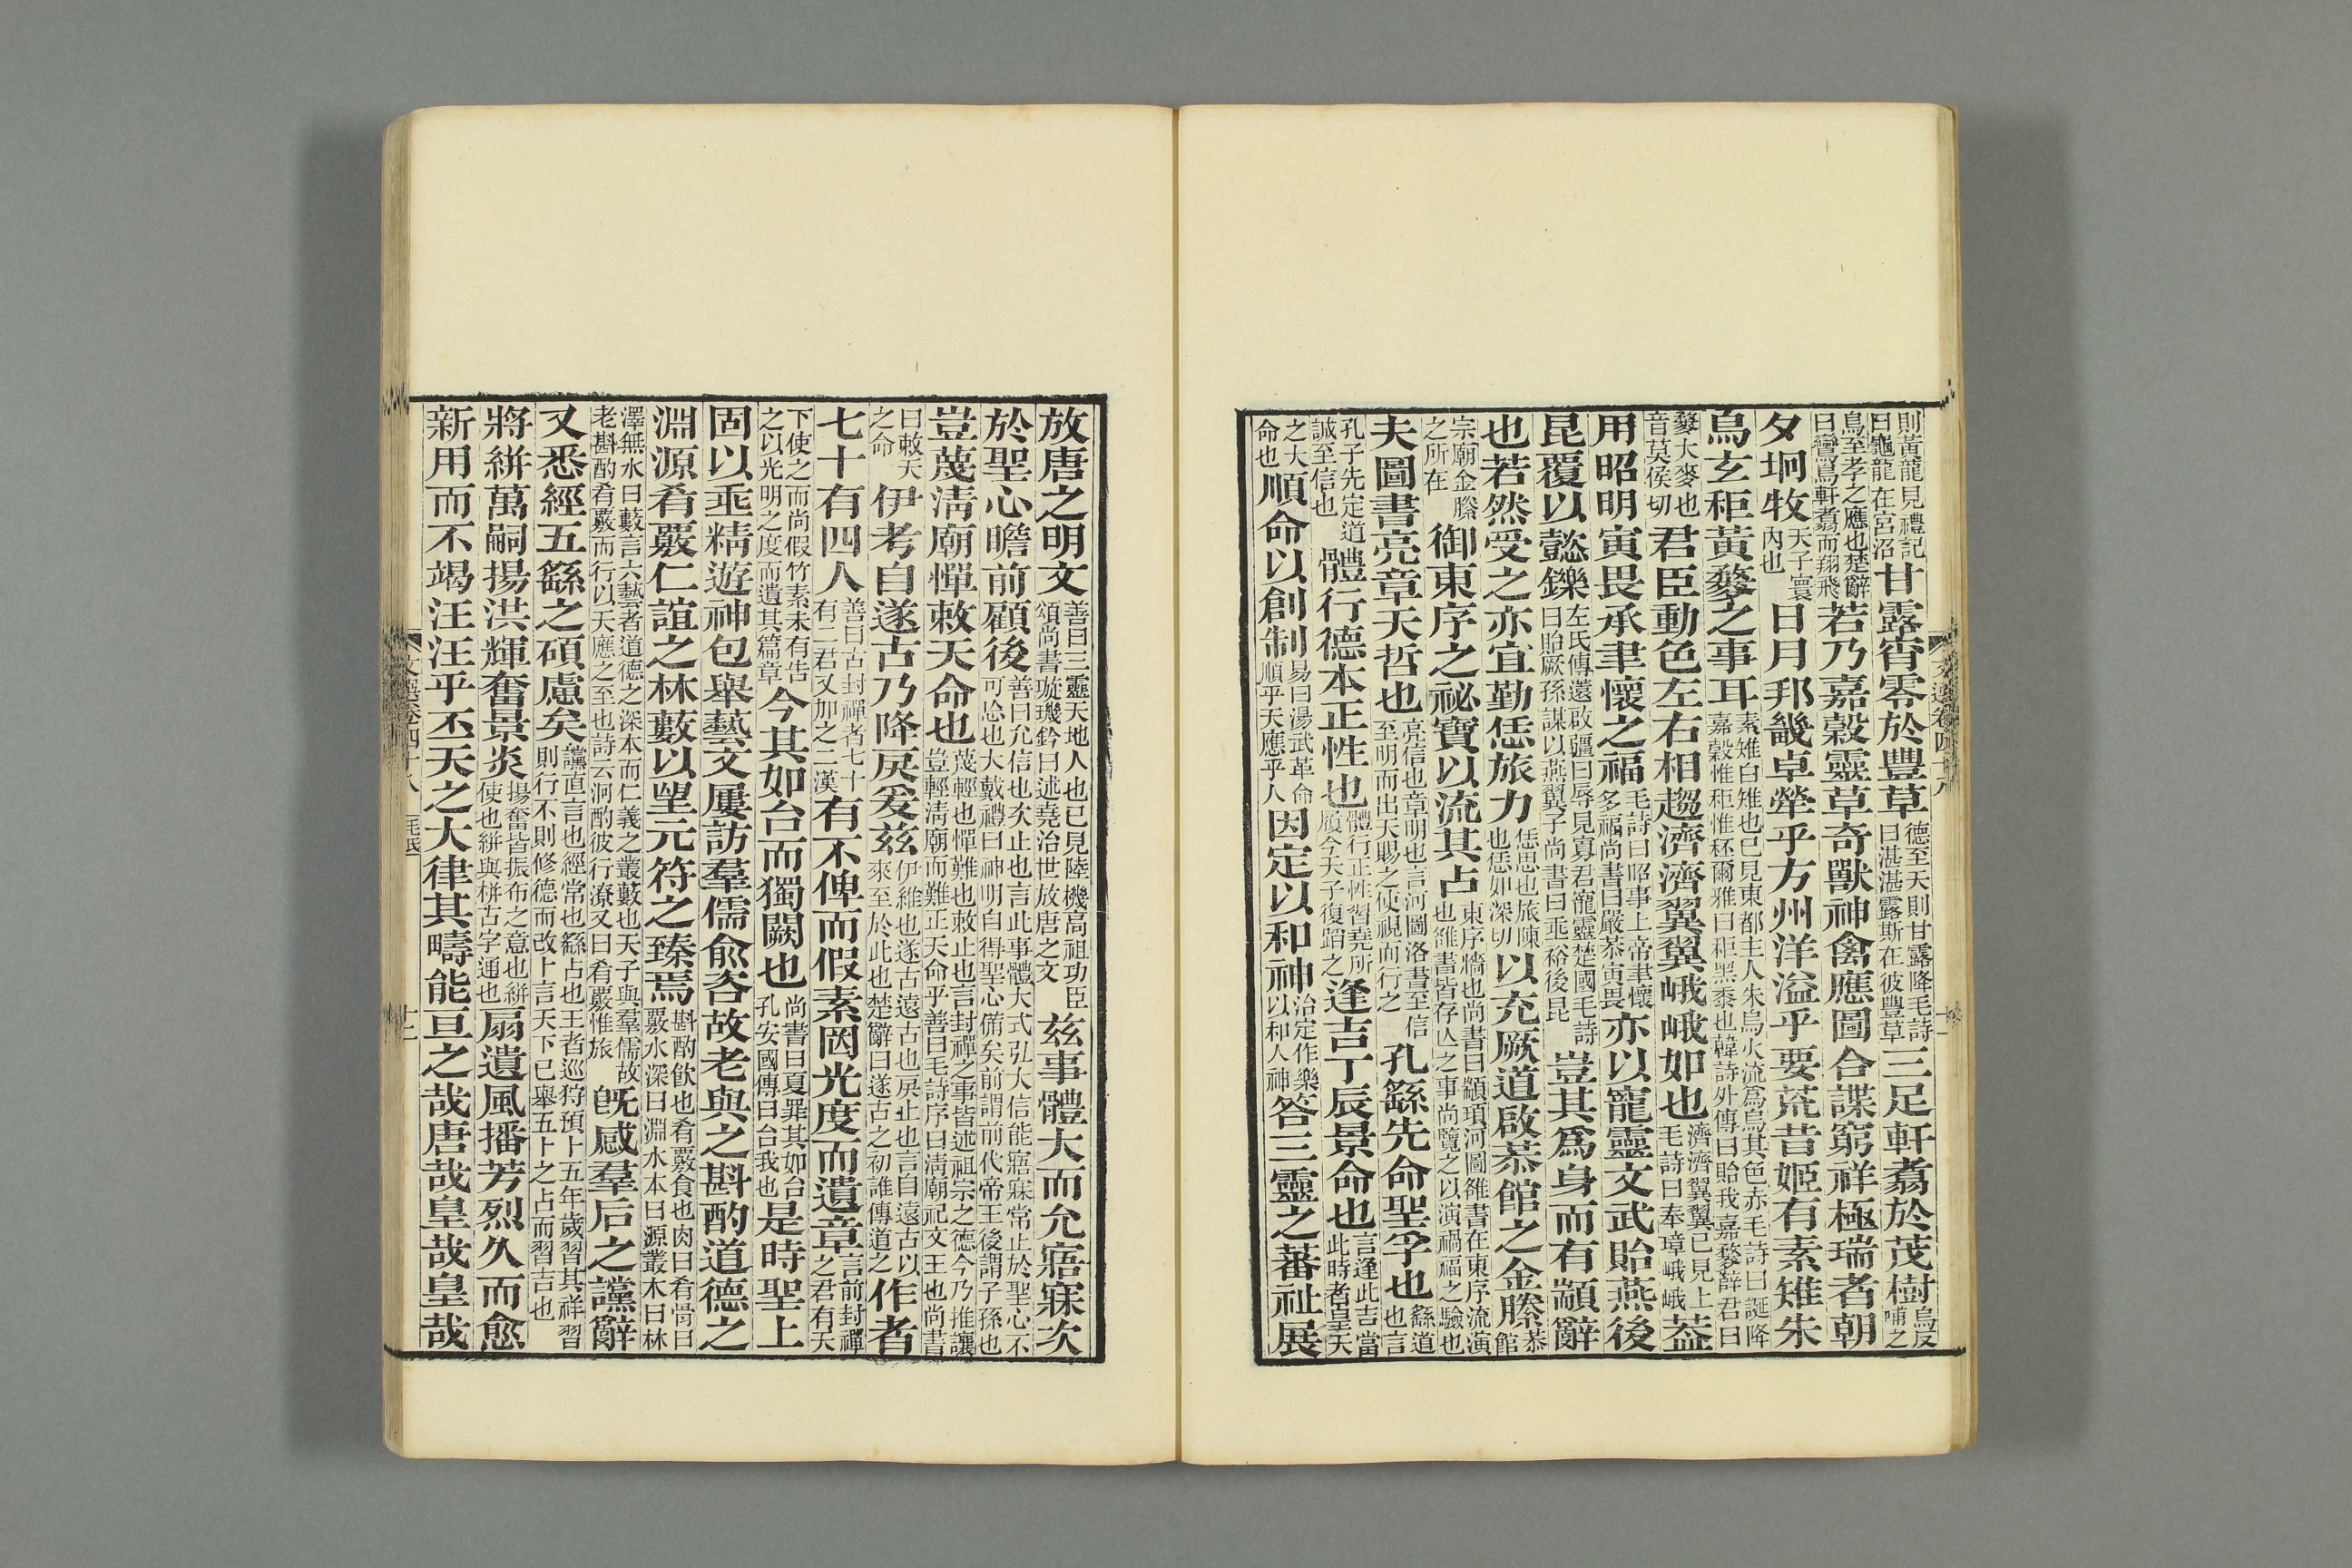 則黃龍見禮記曰龜龍在宮沼甘露宵零於豐草德至天則甘露降毛詩曰湛湛露斯在彼豐草三足軒翥於茂樹烏反哺之
鳥至孝之應也楚辭曰鸞鳥軒翥而翔飛若乃嘉穀靈草奇獸神禽應圖合諜窮祥極瑞者朝
夕坰牧天子寰內也日月邦畿卓犖乎方州洋溢乎要荒昔姬有素雉朱
烏玄秬黃麰之事耳素雉白雉也已見東都主人朱烏火流爲烏其色赤毛詩曰誕降嘉穀惟秬惟秠爾雅曰秬黑黍也韓詩外傳曰貽我嘉麰薛君曰
麰大麥也音莫侯切君臣動色左右相趨濟濟翼翼峨峨如也濟濟翼翼已見上毛詩曰奉璋峨峨葢
用昭明寅畏承聿懷之福毛詩曰昭事上帝聿懷多福尚書曰嚴恭寅畏亦以寵靈文武貽燕後
昆覆以懿鑠左氏傳薳啟疆曰辱見寡君寵靈楚國毛詩曰貽厥孫謀以燕翼子尚書曰垂裕後昆豈其爲身而有顓辭
也若然受之亦宜勤恁旅力恁思也旅陳也恁如深切以充厥道啟恭館之金縢恭館
宗廟金縢之所在御東序之祕寶以流其占東序牆也尚書曰顓頊河圖雒書在東序流演也雒書皆存亾之事尚覽之以演禍福之驗也
夫圖書亮章天哲也亮信也章明也言河圖洛書至信至明而出天賜之使視而行之孔繇先命聖孚也繇道也言
孔子先定道誠至信也體行德本正性也體行正性習堯所履今天子復蹈之逢吉丁辰景命也言逢此吉當此時者皇天
之大命也順命以創制易曰湯武革命順乎天應乎人因定以和神治定作樂以和人神答三靈之蕃祉展
放唐之明文善曰三靈天地人也已見陸機高祖功臣頌尚書璇璣鈐曰述堯治世放唐之文茲事體大而允寤寐次
於聖心瞻前顧後善曰允信也次止也言此事體大式弘大信能寤寐常止於聖心不可忩也大戴禮曰神明自得聖心備矣前謂前代帝王後謂子孫也
豈蔑淸廟憚敕天命也蔑輕也憚難也敕止也言封禪之事皆述祖宗之德今乃推讓豈輕淸廟而難正天命乎善曰毛詩序曰淸廟祀文王也尚書
曰敕天之命伊考自遂古乃降戾爰兹伊維也遂古遠古也戾止也言自遠古以來至於此也楚辭曰遂古之初誰傳道之作者
七十有四人善曰古封禪者七十有二君又加之二漢有不俾而假素罔光度而遺章言前封禪之君有天
下使之而尚假竹素未有告之以光明之度而遺其篇章今其如台而獨闕也尚書曰夏罪其如台孔安國傳曰台我也是時聖上
固以垂精遊神包舉藝文屢訪羣儒俞咨故老與之斟酌道德之
淵源肴覈仁誼之林藪以望元符之臻焉斟酌飲也肴覈食也肉曰肴骨曰覈水深曰淵水本曰源叢木曰林
澤無水曰藪言六藝者道德之深本而仁義之叢藪也天子與羣儒故老斟酌肴覈而行以天應之至也詩云泂酌彼行潦又曰肴覈惟旅旣感羣后之讜辭
又悉經五繇之碩慮矣讜直言也經常也繇占也王者巡狩預卜五年歲習其祥習則行不則修德而改卜言天下已舉五卜之占而習吉也
將絣萬嗣揚洪輝奮景炎揚奮皆振布之意也絣使也絣與栟古字通也扇遺風播芳烈久而愈
新用而不竭汪汪乎丕天之大律其疇能亘之哉唐哉皇哉皇哉
文選卷四十八 十二